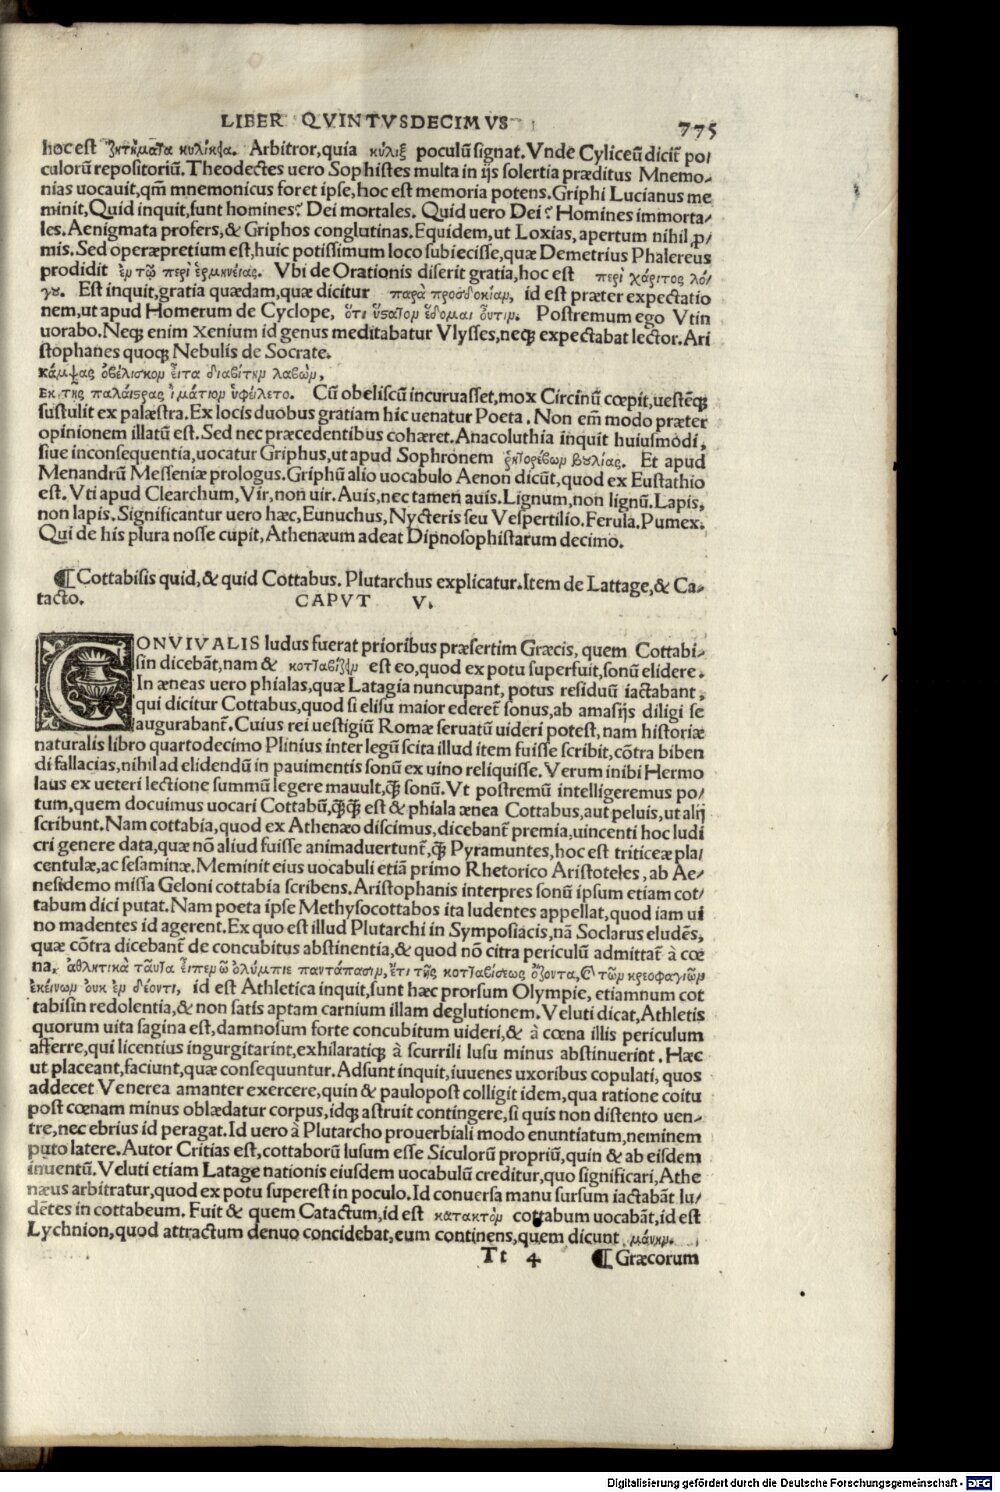 LIBER QVINTVSDECIMVS 775
hoc est ζητήματα κυλίκεια. Arbitror,quia κύλιξ poculū signat. Vnde Cyliceū dicit̃ po/
culorū repositoriū. Theodectes uero Sophistes multa in ijs solertia præditus Mnemo-
nias uocauit,qm̃ mnemonicus foret ipse, hoc est memoria potens. Griphi Lucianus me
minit, Quid inquit, sunt homines? Dei mortales. Quid uero Dei? Homines immorta/
les. Aenigmata profers,& Griphos conglutinas. Equidem, ut Loxias, apertum nihil ꝓ/
mis. Sed operæpretium est, huic potissimum loco subiecisse, quæ Demetrius Phalereus
prodidit ἐν τῷ περὶ ἑρμηνείας. Vbi de Orationis diserit gratia, hoc est περὶ χάριτος λό/
γου. Est inquit, gratia quædam, quæ dicitur παρὰ προσδοκίαν, id est præter expectatio
nem, ut apud Homerum de Cyclope, ὅτι ὕστατον ἔδομαι οὖτιν. Postremum ego Vtin
uorabo. Neqꝫ enim Xenium id genus meditabatur Vlysses, neqꝫ expectabat lector. Ari
stophanes quoqꝫ Nebulis de Socrate.
κάμψας ὀβελίσκον εἶτα διαβίτην λαβὼν,
Εκ τῆς παλαίστρας ἱμάτιον ὑφείλετο. Cū obeliscū incuruasset, mox Circinū cœpit, uestēqꝫ
sustulit ex palæstra. Ex locis duobus gratiam hic uenatur Poeta. Non em̃ modo præter
opinionem illatū est. Sed nec præcedentibus cohæret. Anacoluthia inquit huiusmodi,
siue inconsequentia, uocatur Griphus, ut apud Sophronem βουλίας. Et apud
Menandrū Messeniæ prologus. Griphū alio uocabulo Aenon dicūt, quod ex Eustathio
est. Vti apud Clearchum, Vir, non uir. Auis, nec tamen auis. Lignum, non lignū. Lapis,
non lapis. Significantur uero hæc, Eunuchus, Nycteris seu Vespertilio. Ferula. Pumex.
Qui de his plura nosse cupit, Athenæum adeat Dipnosophistarum decimo.
¶ Cottabisis quid,& quid Cottabus. Plutarchus explicatur. Item de Lattage,& Ca-
tacto. CAPVT V.
CONVIVALIS ludus fuerat prioribus præsertim Græcis, quem Cottabi-
sin dicebāt, nam & κοτταβίζειν est eo, quod ex potu superfuit, sonū elidere.
In æneas uero phialas, quæ Latagia nuncupant, potus residuū iactabant,
qui dicitur Cottabus, quod si elisu maior ederet̃ sonus, ab amasijs diligi se
augurabant̃. Cuius rei uestigiū Romæ seruatū uideri potest, nam historiæ
naturalis libro quartodecimo Plinius inter legū scita illud item fuisse scribit, cōtra biben
di fallacias, nihil ad elidendū in pauimentis sonū ex uino reliquisse. Verum inibi Hermo
laus ex ueteri lectione summū legere mauult, ꝙ̃ sonū. Vt postremū intelligeremus po/
tum, quem docuimus uocari Cottabū, ꝙ̃ꝙ̃ est & phiala ænea Cottabus, aut peluis, ut alij
scribunt. Nam cottabia, quod ex Athenæo discimus, dicebant̃ premia, uincenti hoc ludi
cri genere data, quæ nō aliud fuisse animaduertunt̃, ꝙ̃ Pyramuntes, hoc est triticeæ pla/
centulæ, ac sesaminæ. Meminit eius uocabuli etiā primo Rhetorico Aristoteles, ab Ae-
nesidemo missa Geloni cottabia scribens. Aristophanis interpres sonū ipsum etiam cot/
tabum dici putat. Nam poeta ipse Methysocottabos ita ludentes appellat, quod iam ui
no madentes id agerent. Ex quo est illud Plutarchi in Symposiacis, nā Soclarus eludēs,
quæ cōtra dicebant̃ de concubitus abstinentia,& quod nō citra periculū admittat̃ à cœ
na. ἀθλητικὰ ταῦτα εἶπεν ὦ ὀλύμπιε παντάπασιν, ἔτι τῆς κοτταβίσεως ὄζοντα, καὶ τῶν κρεοφαγιῶν
ἐκείνων οὐκ ἐν δέοντι, id est Athletica inquit, sunt hæc prorsum Olympie, etiamnum cot
tabisin redolentia,& non satis aptam carnium illam deglutionem. Veluti dicat, Athletis
quorum uita sagina est, damnosum forte concubitum uideri,& à cœna illis periculum
afferre, qui licentius ingurgitarint, exhilaratiqꝫ à scurrili lusu minus abstinuerint. Hæc
ut placeant, faciunt, quæ consequuntur. Adsunt inquit, iuuenes uxoribus copulati, quos
addecet Venerea amanter exercere, quin & paulopost colligit idem, qua ratione coitu
post cœnam minus oblædatur corpus, idqꝫ astruit contingere, si quis non distento uen-
tre, nec ebrius id peragat. Id uero à Plutarcho prouerbiali modo enuntiatum, neminem
puto latere. Autor Critias est, cottaborū lusum esse Siculorū propriū, quin & ab eisdem
inuentū. Veluti etiam Latage nationis eiusdem uocabulū creditur, quo significari, Athe
næus arbitratur, quod ex potu superest in poculo. Id conuersa manu sursum iactabāt lu/
dētes in cottabeum. Fuit & quem Catactum, id est κατακτὸν cottabum uocabāt, id est
Lychnion, quod attractum denuo concidebat, eum continens, quem dicunt μάνην.
Tt 4 ¶ Græcorum
Digitalisierung gefördert durch die Deutsche Forschungsgemeinschaft - DFG